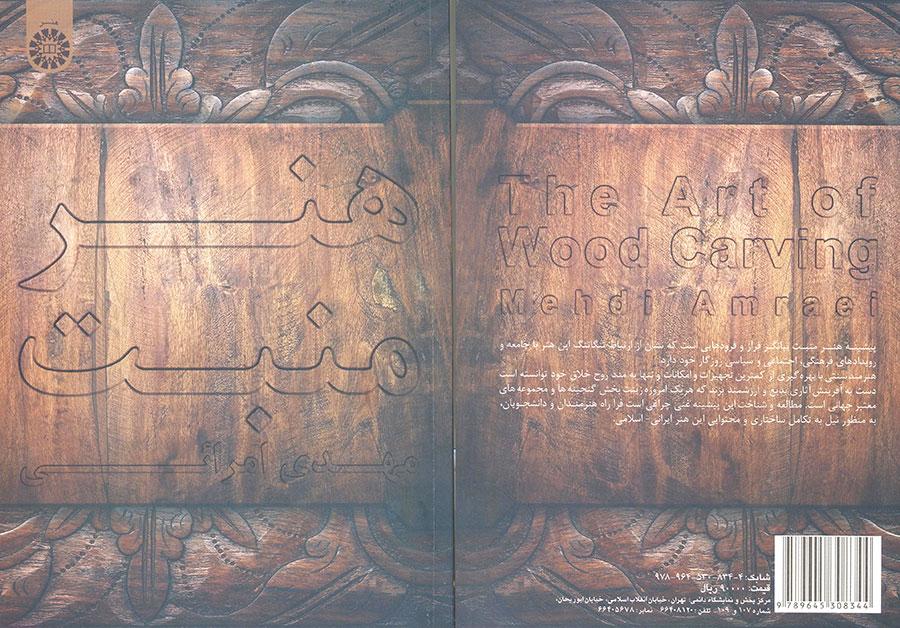 هنر
منبت
مهدی امرائی
The Art of
Wood Carving
Mehdi Amraei
پیشینهٔ هنر منبت بیانگر فراز و فرودهایی است که نشان از ارتباط تنگاتنگ این هنر با جامعه و
رویدادهای فرهنگی، اجتماعی و سیاسی روزگار خود دارد.
هنرمند سنتی با بهره گیری از کمترین تجهیزات و امکانات و تنها به مدد روح خلاق خود توانسته است
دست به آفرینش آثاری بدیع و ارزشمند بزند که هریک امروزه زینت بخش گنجینه ها و مجموعه های
معتبر جهانی است. مطالعه و شناخت این پیشینه غنی چراغی است فرا راه هنرمندان و دانشجویان،
به منظور نیل به تکامل ساختاری و محتوایی این هنر ایرانی- اسلامی.
شابک: ۴-۸۳۴-۵۳۰-۹۶۴-۹۷۸
قیمت: ۹۰۰۰۰ ریال
مرکز پخش و نمایشگاه دائمی: تهران، خیابان انقلاب اسلامی، خیابان ابوریحان،
شماره ۱۰۷ و ۱۰۹ تلفن: ۶۶۴۰۸۱۲۰ نمابر: ۶۶۴۰۵۶۷۸
9 789645 308344